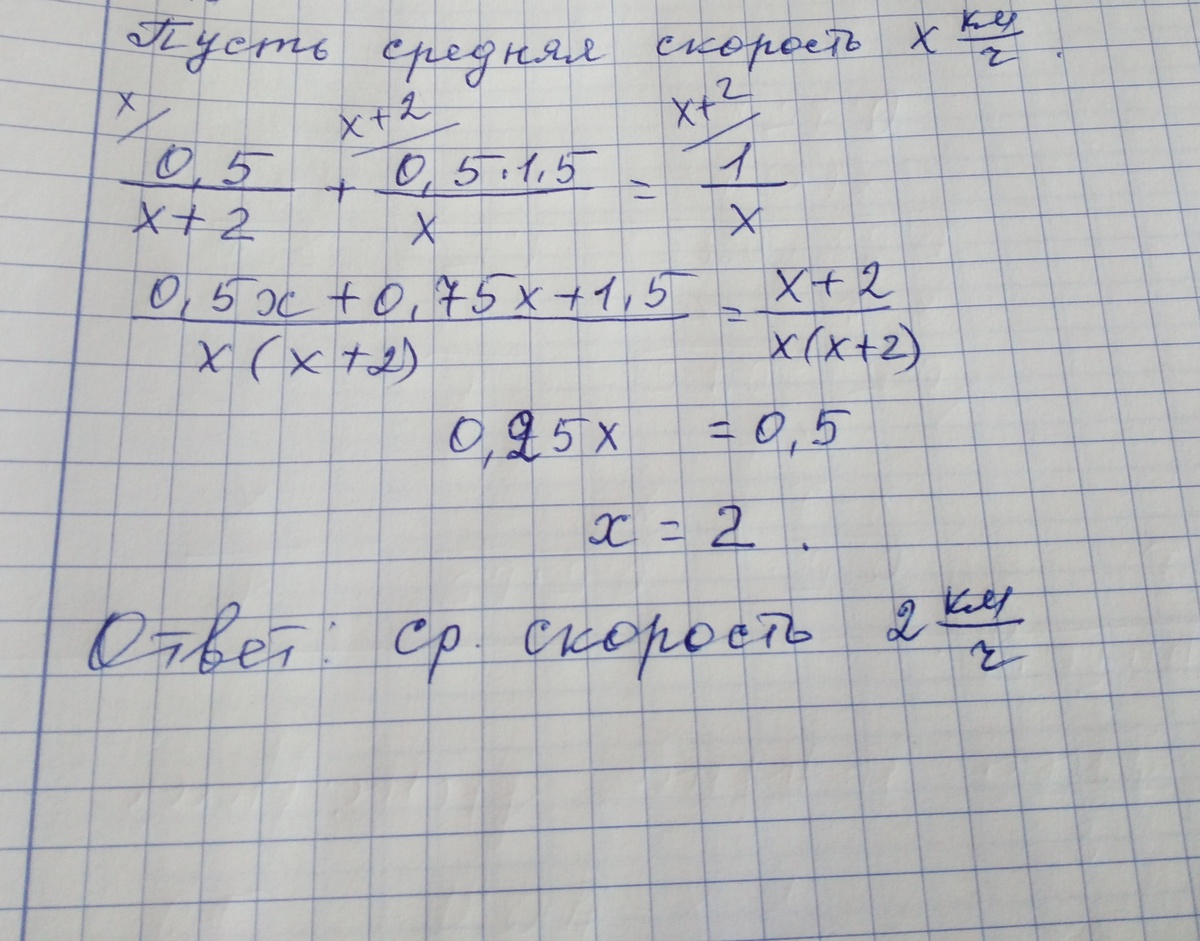 Пусть средняя скорость x км/ч.
x/ 0,5/(x+2) + x+2/ 0,5·1,5/x = x+2/ 1/x
(0,5x+0,75x+1,5)/(x(x+2)) = (x+2)/(x(x+2))
0,25x = 0,5
x = 2.
Ответ: ср. скорость 2 км/ч